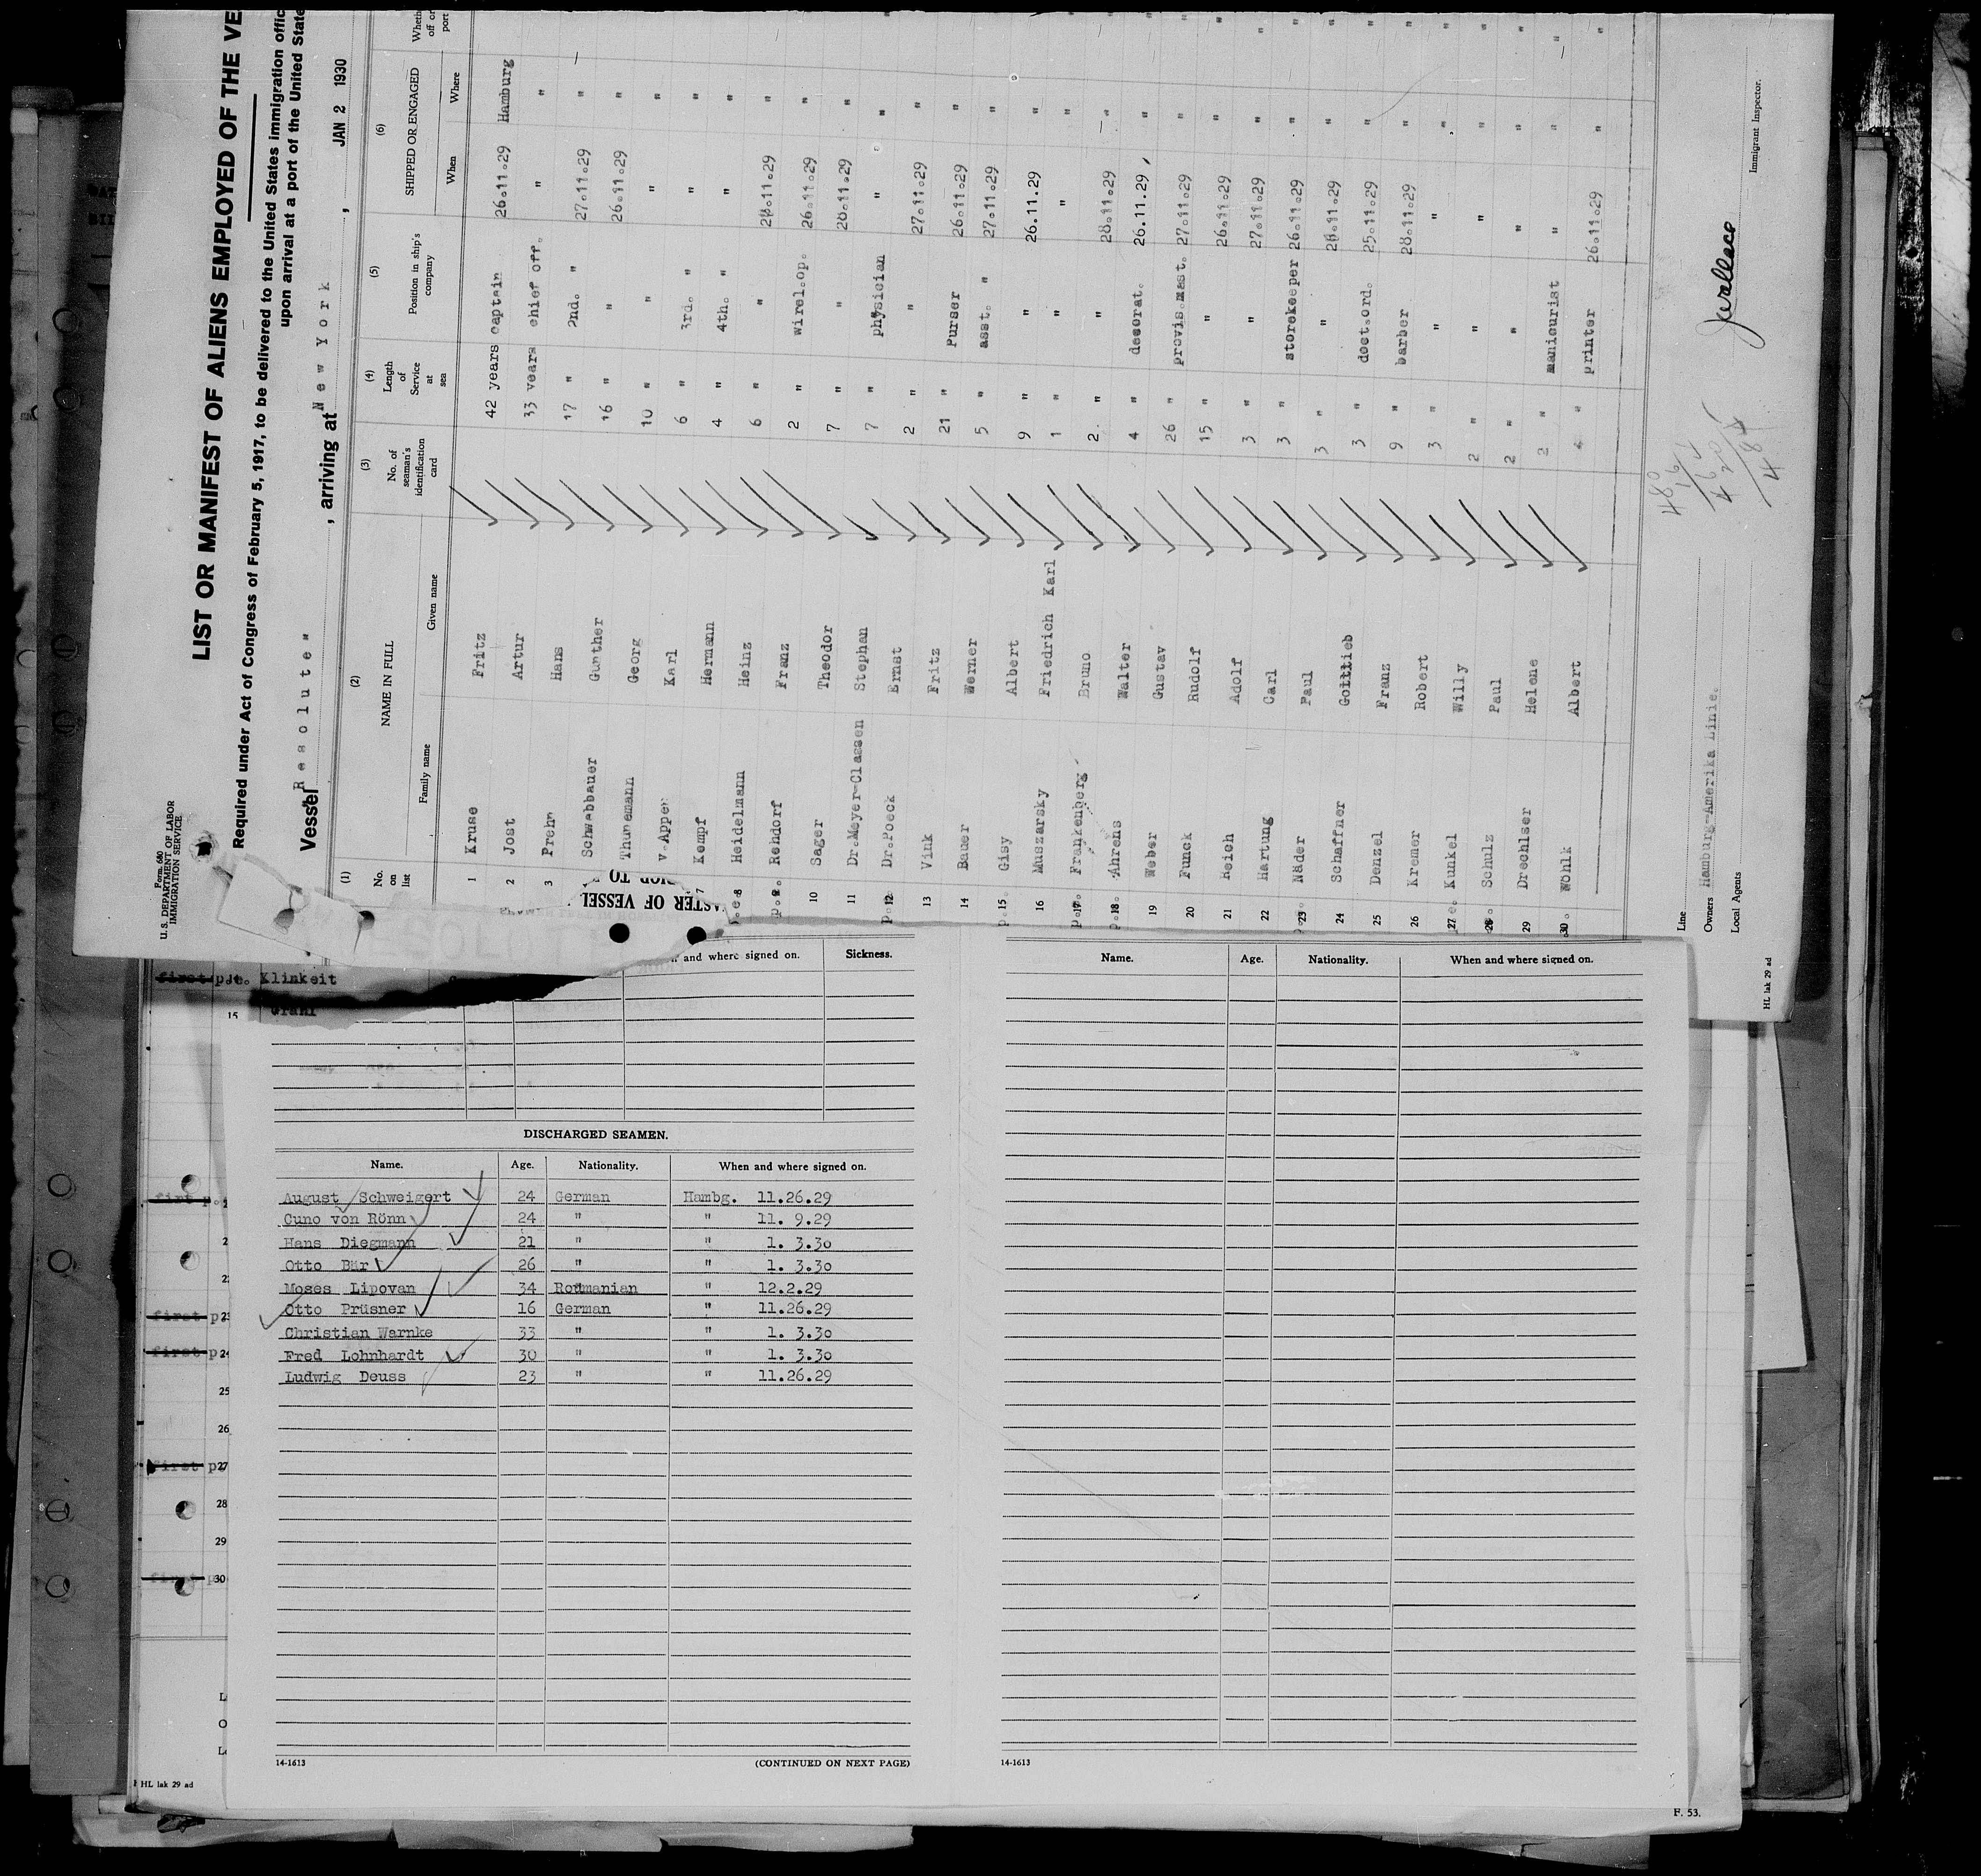 Form 680
U. S. DEPARTMENT OF LABOR
IMMIGRATION SERVICE
LIST OR MANIFEST OF ALIENS EMPLOYED OF THE VE
Required under Act of Congress of February 5, 1917, to be delivered to the United States immigration offic
upon arrival at a port of the United State
Vessel "Resolute" , arriving at New York , JAN 2 1930
(1) (2) (3) (4) (5) (6)
No. on list NAME IN FULL No. of seaman's identification card Length of Service at sea Position in ship's company SHIPPED OR ENGAGED
Family name Given name When Where
1 Kruse Fritz 42 years captain 26.11.29 Hamburg
2 Jost Artur 33 years chief off. " "
3 Prehn Hans 17 " 2nd. " 27.11.29 "
Schwabbauer Gunther 16 " " 26.11.29 "
Thunemann Georg 10 " " " "
v.Appen Karl 6 " 3rd. " " "
7 Kempf Hermann 4 " 4th. " " "
8 Heidelmann Heinz 6 " " 28.11.29 "
p.e. 9 Rehdorf Franz 2 " wirel.op. 26.11.29 "
10 Sager Theodor 7 " " 28.11.29 "
11 Dr.Meyer-Classen Stephan 7 " physician " "
p.e. 12 Dr.Poeck Ernst 2 " " 27.11.29 "
13 Vink Fritz 21 " Purser 26.11.29 "
14 Bauer Werner 5 " asst. " 27.11.29 "
p.e. 15 Gisy Albert 9 " " 26.11.29 "
16 Muszarsky Friedrich Karl 1 " " " "
p.e. 17 Frankenberg Bruno 2 " " 28.11.29 "
p.e. 18 Ahrens Walter 4 " decorat. 26.11.29 "
19 Weber Gustav 26 " provis.mast. 27.11.29 "
20 Funck Rudolf 15 " " 26.11.29 "
21 Reich Adolf 3 " " 27.11.29 "
22 Hartung Carl 3 " storekeeper 26.11.29 "
23 Näder Paul 3 " " 28.11.29 "
24 Schaffner Gottlieb 3 " doct.ord. 25.11.29 "
25 Denzel Franz 9 " barber 28.11.29 "
26 Kremer Robert 3 " " " "
27 Kunkel Willy 2 " " " "
28 Schulz Paul 2 " " " "
29 Drechlser Helene 2 " manicurist " "
30 Wöhlk Albert " printer 26.11.29 "
Line
Owners Hamburg-Amerika Linie.
Local Agents
Immigrant Inspector.
480
484
HL lak 29 ad
ASTER OF VESSEL
first p.e. Klinkeit
15 Grahl
and where signed on. Sickness.
DISCHARGED SEAMEN.
Name. Age. Nationality. When and where signed on.
August Schweigert 24 German Hambg. 11.26.29
Cuno von Rönn 24 " " 11. 9.29
Hans Diegmann 21 " " 1. 3.30
Otto Bär 26 " " 1. 3.30
Moses Lipovan 34 Roumanian " 12.2.29
Otto Prüsner 16 German " 11.26.29
Christian Warnke 33 " " 1. 3.30
Fred Lohnhardt 30 " " 1. 3.30
Ludwig Deuss 23 " " 11.26.29
14-1613 (CONTINUED ON NEXT PAGE)
Name. Age. Nationality. When and where signed on.
14-1613
first p 23
first p 24
25
26
first p 27
28
29
first p 30
HL lak 29 ad
F. 53.